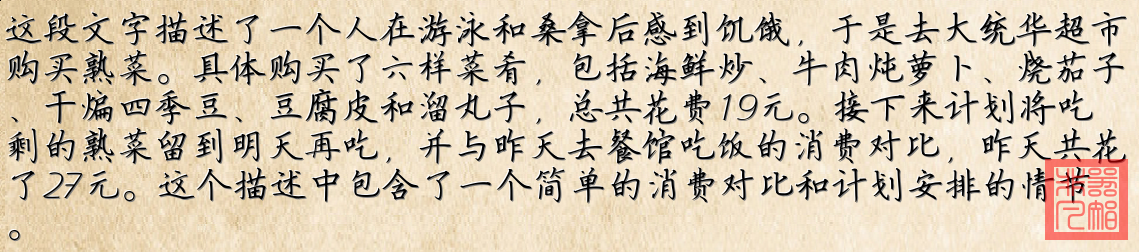 这段文字描述了一个人在游泳和桑拿后感到饥饿，于是去大统华超市
购买熟菜。具体购买了六样菜肴，包括海鲜炒、牛肉炖萝卜、烧茄子
、干煸四季豆、豆腐皮和溜丸子，总共花费19元。接下来计划将吃
剩的熟菜留到明天再吃，并与昨天去餐馆吃饭的消费对比，昨天共花
了27元。这个描述中包含了一个简单的消费对比和计划安排的情节
。